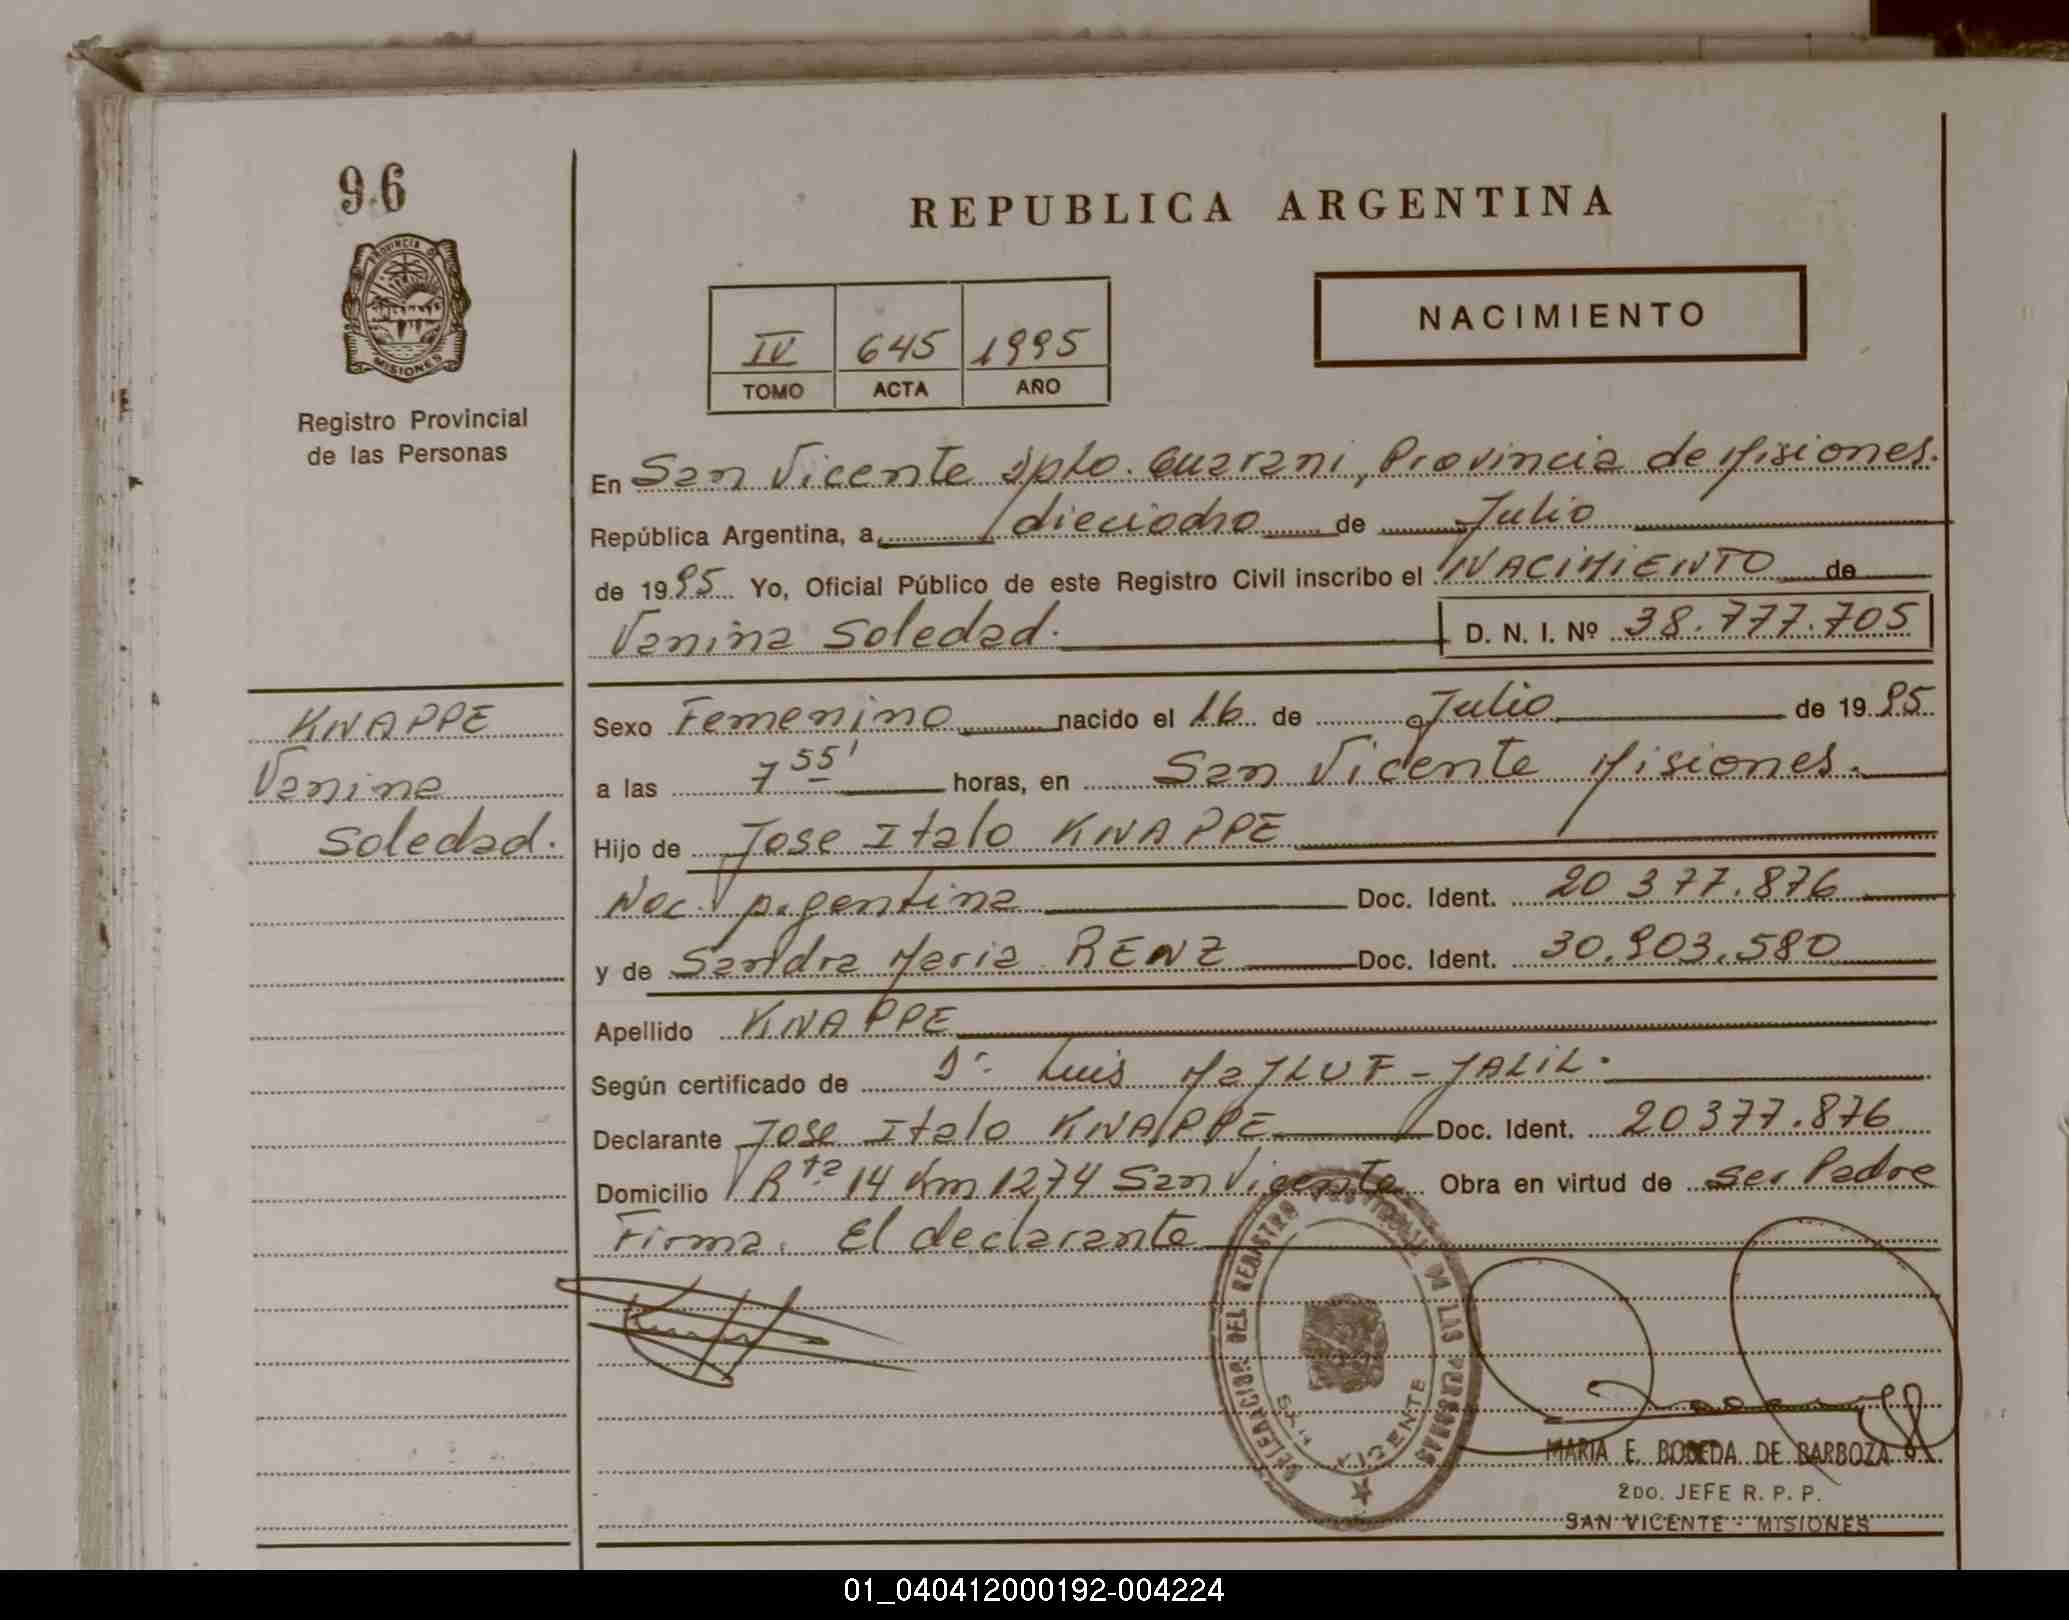 96
PROVINCIA DE
MISIONES
Registro Provincial
de las Personas
REPUBLICA ARGENTINA
NACIMIENTO
IV 645 1995
TOMO ACTA AÑO
En San Vicente Dpto. Guarani, Provincia de Misiones.
República Argentina, a dieciocho de Julio
de 1995 Yo, Oficial Público de este Registro Civil inscribo el NACIMIENTO de
Vanina Soledad. D. N. I. Nº 38.777.705
KNAPPE
Vanina
Soledad.
Sexo Femenino nacido el 16 de Julio de 1995
a las 7 55' horas, en San Vicente Misiones.
Hijo de Jose Italo KNAPPE
Nac. Argentina Doc. Ident. 20 377.876
y de Sandra Maria RENZ Doc. Ident. 30.903.580
Apellido KNAPPE
Según certificado de Dr. Luis MaJLUF-JALIL.
Declarante Jose Italo KNAPPE Doc. Ident. 20377.876
Domicilio Rta 14 Km 1274 San Vicente Obra en virtud de ser Padre
Firma. El declarante
DELEGACION DEL REGISTRO PROVINCIAL DE LAS PERSONAS
SAN VICENTE
MARIA E. BOBEDA DE BARBOZA
2DO. JEFE R. P. P.
SAN VICENTE - MISIONES
01_040412000192-004224